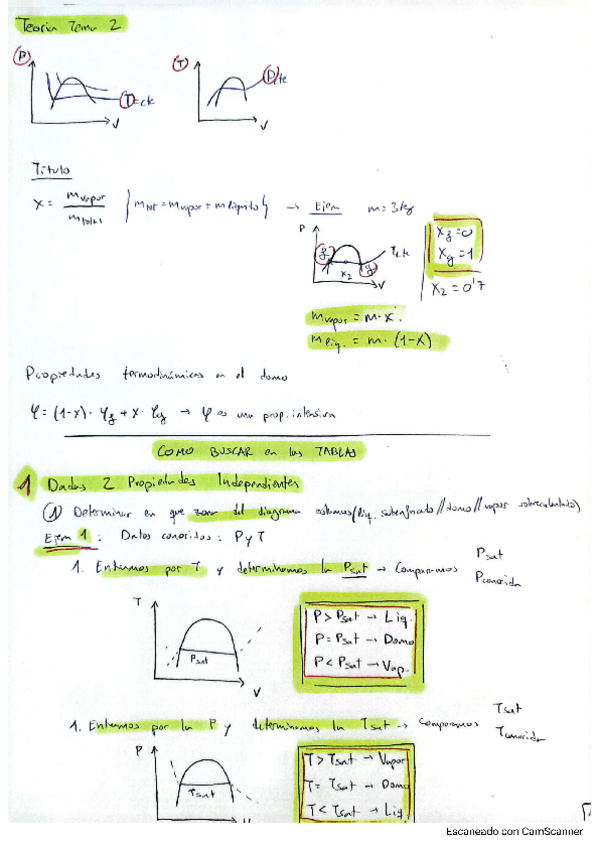 Teoría Tema 2
P
T = cte
V
T
P cte
V
Título
x = m vapor / m total { m tot = m vapor + m líquido } → Ejem m = 3 kg
P
f
x₂
g
T cte
V
x_f = 0
x_g = 1
x₂ = 0'7
m vapor = m · x
m liq. = m · (1-x)
Propiedades termodinámicas en el domo
φ = (1-x) · φ_f + x · φ_g → φ es una prop. intensiva
COMO BUSCAR en las TABLAS
1 Dados 2 Propiedades Independientes
① Determinar en que zona del diagrama estamos (liq. subenfriado // domo // vapor sobrecalentado)
Ejem 1: Datos conocidos: P y T
1. Entramos por T y determinamos la Psat → Comparamos Psat
Pconocida
T
Psat
V
P > Psat → Liq.
P = Psat → Domo
P < Psat → Vap.
1. Entramos por la P y determinamos la Tsat → comparamos Tsat
Tconocida
P
Tsat
V
T > Tsat → Vapor
T = Tsat → Domo
T < Tsat → Liq
Escaneado con CamScanner